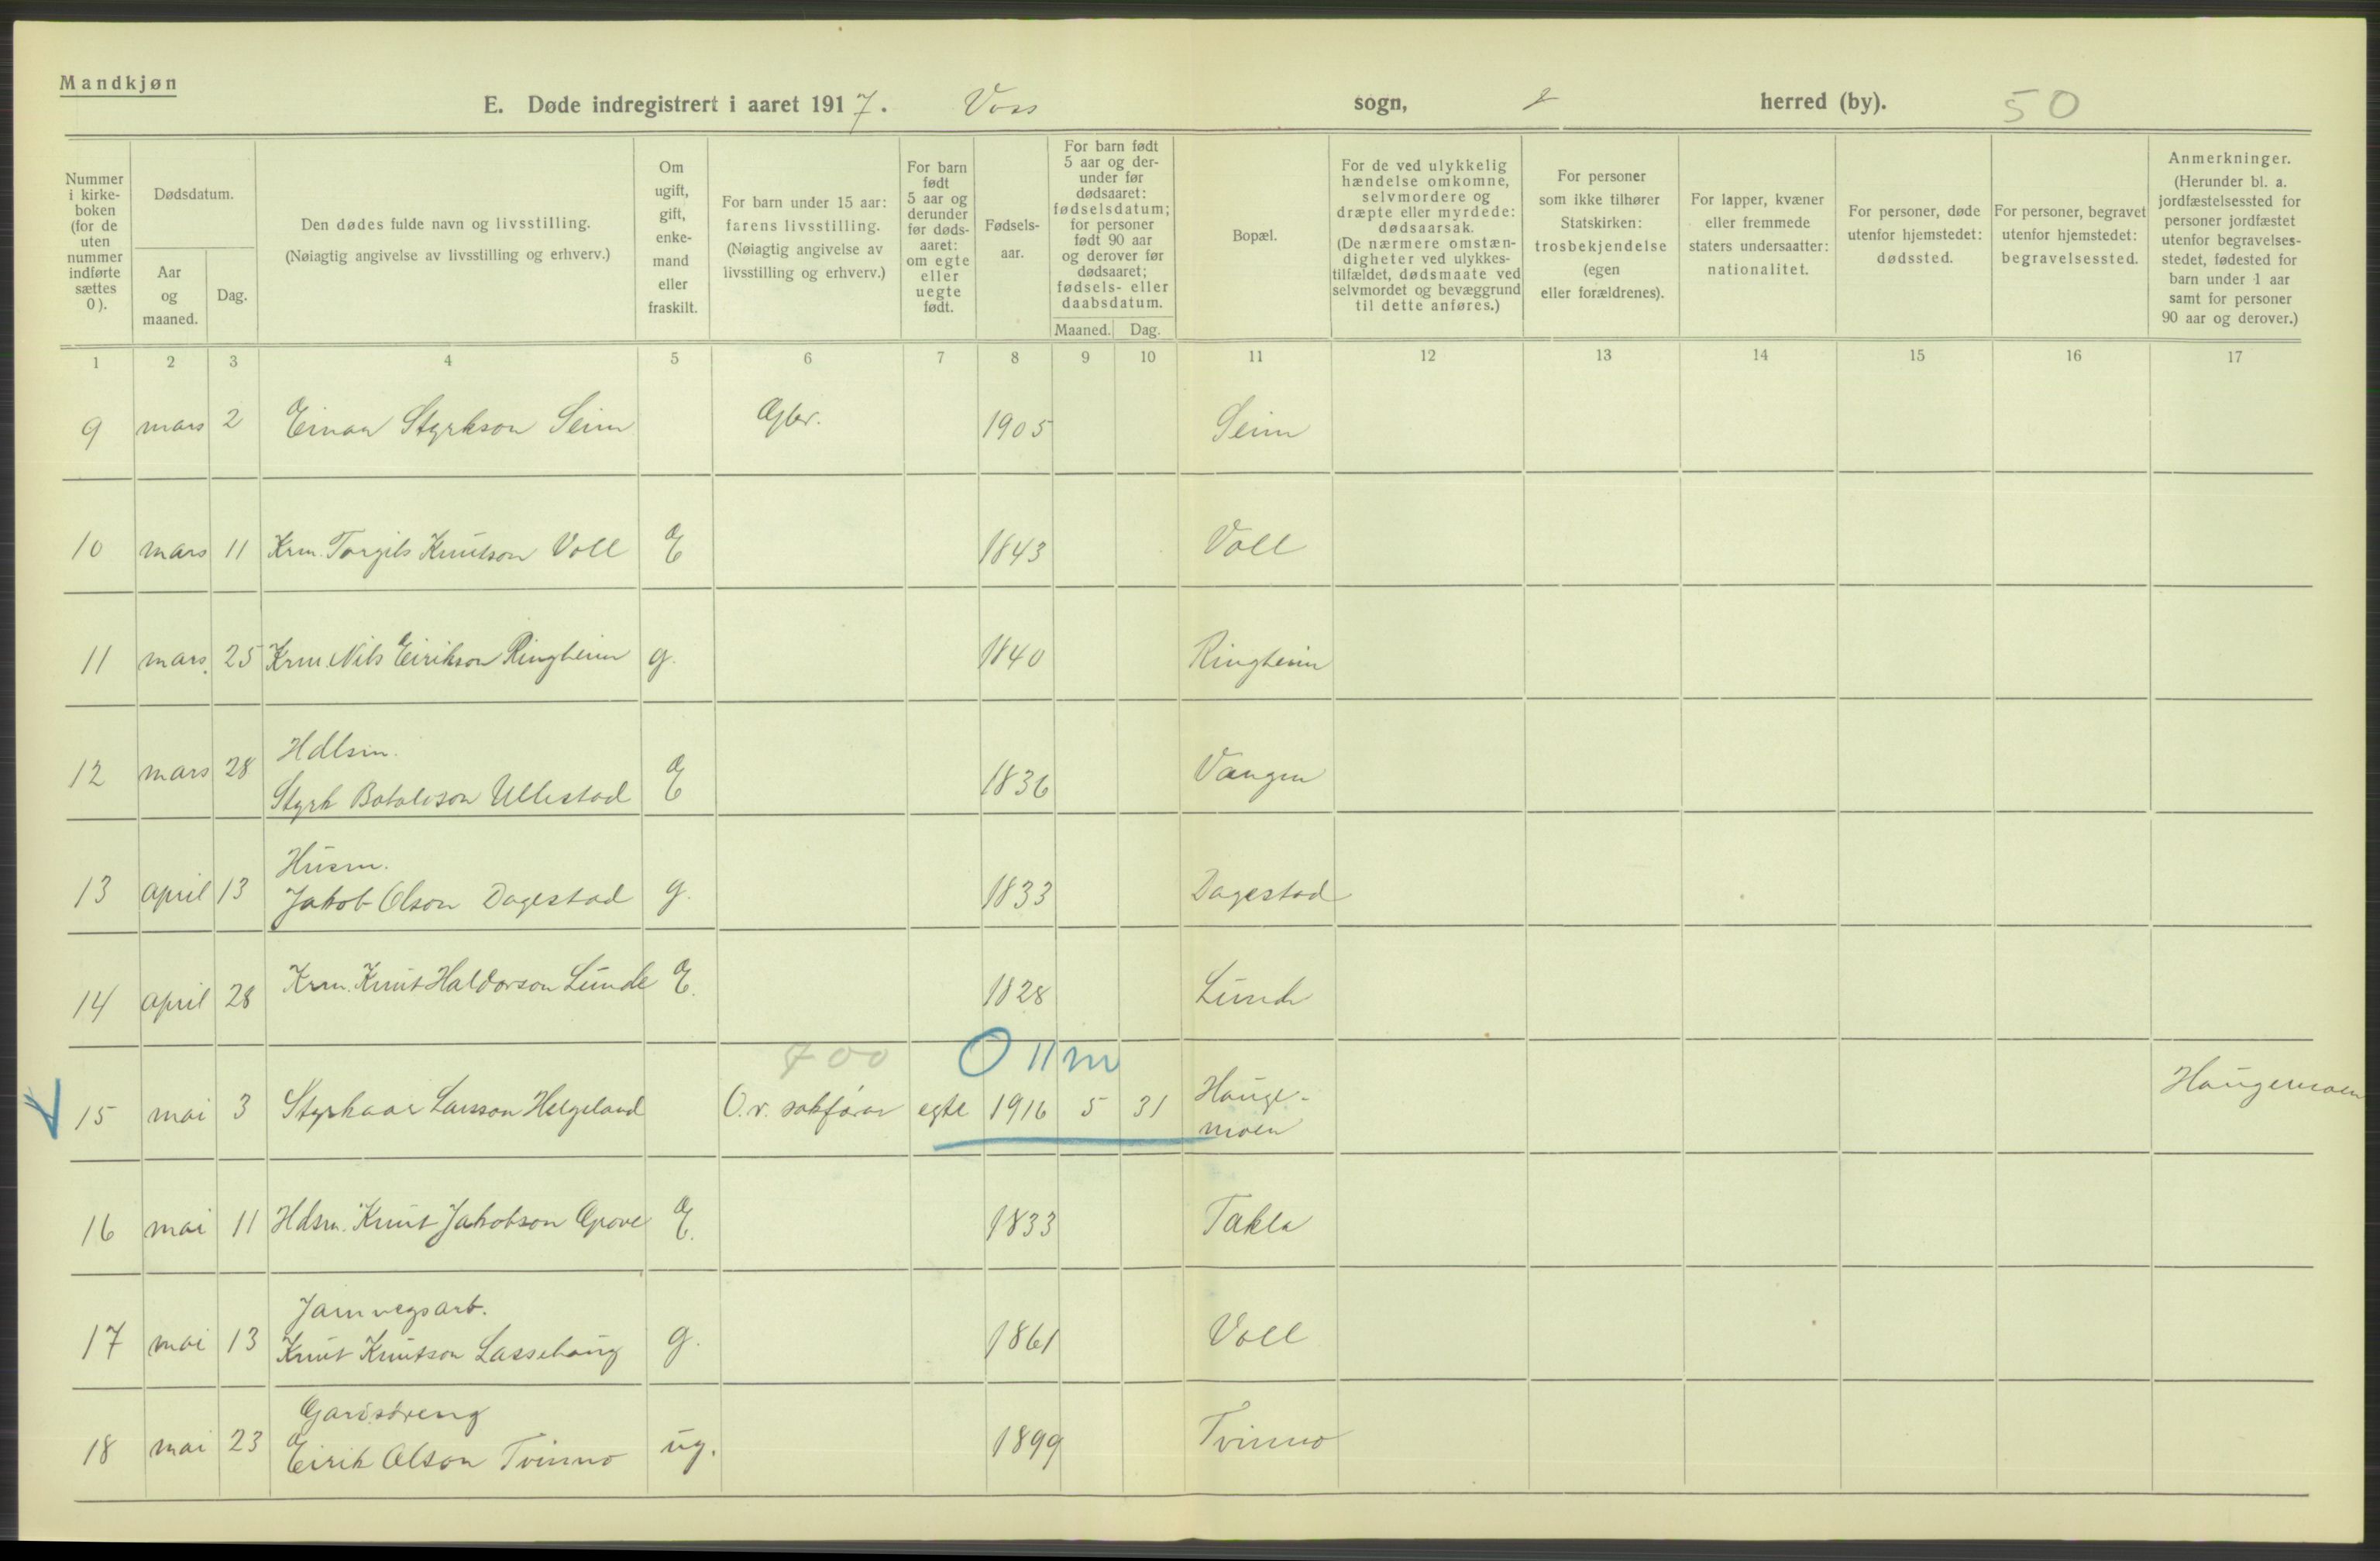 Mandkjøn
E. Døde indregistrert i aaret 1917. Voss sogn, herred (by). 50
Nummer i kirke-boken (for de uten nummer indførte sættes 0).
Dødsdatum.
Aar og maaned.
Dag.
Den dødes fulde navn og livsstilling.
(Nøiagtig angivelse av livsstilling og erhverv.)
Om ugift, gift, enke-mand eller fraskilt.
For barn under 15 aar: farens livsstilling. (Nøiagtig angivelse av livsstilling og erhverv.)
For barn født 5 aar og derunder før døds-aaret: om egte eller uegte født.
Fødsels-aar.
For barn født 5 aar og der-under før dødsaaret: fødselsdatum; for personer født 90 aar og derover før dødsaaret; fødsels- eller daabsdatum.
Maaned. Dag.
Bopæl.
For de ved ulykkelig hændelse omkomne, selvmordere og dræpte eller myrdede: dødsaarsak. (De nærmere omstæn-digheter ved ulykkes-tilfældet, dødsmaate ved selvmordet og bevæggrund til dette anføres.)
For personer som ikke tilhører Statskirken: trosbekjendelse (egen eller forældrenes).
For lapper, kvæner eller fremmede staters undersaatter: nationalitet.
For personer, døde utenfor hjemstedet: dødssted.
For personer, begravet utenfor hjemstedet: begravelsessted.
Anmerkninger. (Herunder bl. a. jordfæstelsessted for personer jordfæstet utenfor begravelses-stedet, fødested for barn under 1 aar samt for personer 90 aar og derover.)
1 2 3 4 5 6 7 8 9 10 11 12 13 14 15 16 17
9 mars 2 Einar Styrkson Seim Gbr. 1905 Seim
10 mars 11 Krm. Torgils Knutson Voll E 1843 Voll
11 mars 25 Krm. Nils Eirikson Ringheim g. 1840 Ringheim
Hdlsm.
12 mars 28 Styrk Botolvson Ullestad E 1836 Vangen
Husm.
13 april 13 Jakob Olson Dagestad g. 1833 Dagestad
14 april 28 Krm. Knut Haldorson Lunde E. 1828 Lunde
700 0 11 m
15 mai 3 Styrkaar Larsson Helgeland O.r. sakførar egte 1916 5 31 Hauge-
moen Haugemoen
16 mai 11 Hdsm. Knut Jakobson Gjove E. 1833 Takla
Jarnvegsarb.
17 mai 13 Knut Knutson Lassehaug g. 1861 Voll
Gardsdreng
18 mai 23 Eirik Olson Tvinno ug. 1899 Tvinno